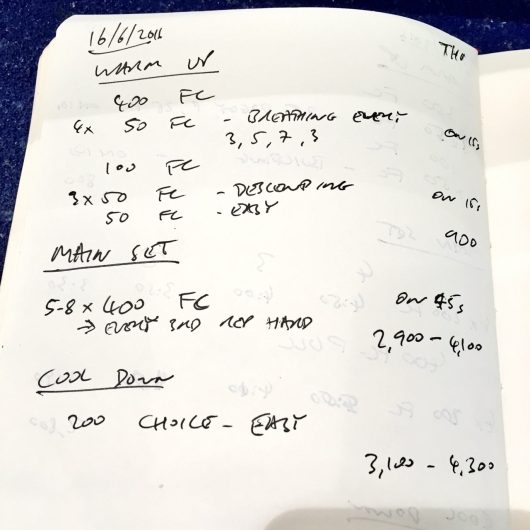 16/6/2016 THU
WARM UP
400 FC
4x 50 FC - BREATHING EVERY
3, 5, 7, 3 ON 15s
100 FC
3x50 FC - DESCENDING ON 15s
50 FC - EASY
900
MAIN SET
5-8 x 400 FC ON 45s
→ EVERY 3RD REP HARD
2,900 - 4,100
COOL DOWN
200 CHOICE - EASY
3,100 - 4,300